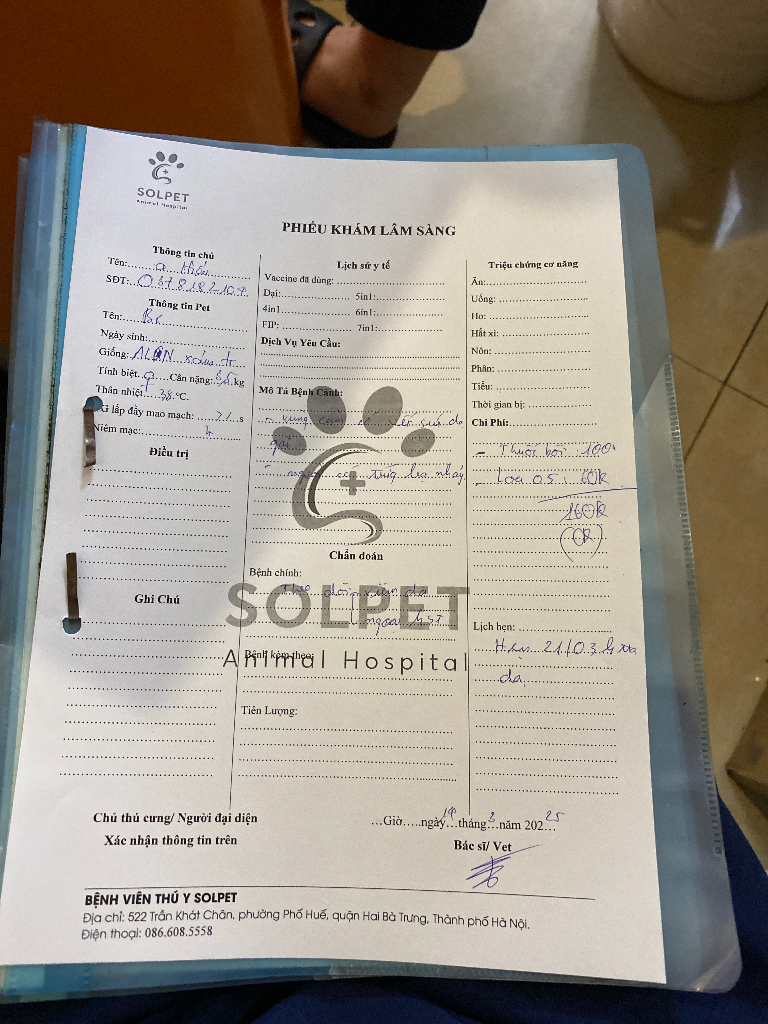 SOLPET
Animal Hospital
PHIẾU KHÁM LÂM SÀNG
Thông tin chủ
Tên: a Hiếu
SĐT:
Thông tin Pet
Tên:
Ngày sinh:
Giống: ALN xám tr
Tính biệt: ♀ Cân nặng: kg
Thân nhiệt: 38 °C
G lấp đầy mao mạch: 21 s
Niêm mạc:
Điều trị
Ghi Chú
Lịch sử y tế
Vaccine đã dùng:
Dại: 5in1:
4in1 6in1:
FIP: 7in1:
Dịch Vụ Yêu Cầu:
Mô Tả Bệnh Cảnh:
- vùng cằm có vết do
gãi
Chẩn đoán
Bệnh chính:
Theo dõi viêm da
ngoại KST
SOLPET
Animal Hospital
Bệnh kèm theo:
Tiên Lượng:
Triệu chứng cơ năng
Ăn:
Uống:
Ho:
Hắt xì:
Nôn:
Phân:
Tiểu:
Thời gian bị:
Chi Phí:
- Thuốc bôi 100
- Loa 05: 60k
160k
(CK)
Lịch hẹn:
Hẹn 21/03
da
Chủ thú cưng/ Người đại diện
Xác nhận thông tin trên
...Giờ.....ngày 19 tháng 3 năm 202 25
Bác sĩ/ Vet
BỆNH VIỆN THÚ Y SOLPET
Địa chỉ: 522 Trần Khát Chân, phường Phố Huế, quận Hai Bà Trưng, Thành phố Hà Nội.
Điện thoại: 086.608.5558